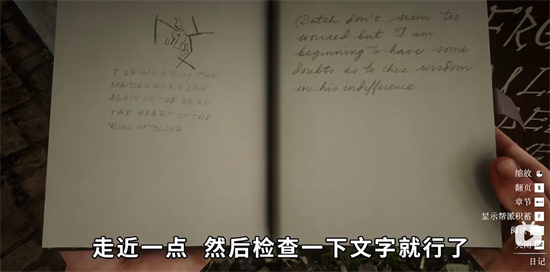 I DRINK FROM THE
MAIDEN AND I LIVE
AGAIN IN THE
THE HEART OF THE
RING OF BLOOD
Dutch don't seem too
worried but I am
beginning to have some
doubts as to the wisdom
in his indifference
缩放
翻页
章节
显示帮派积蓄
日记
走近一点 然后检查一下文字就行了